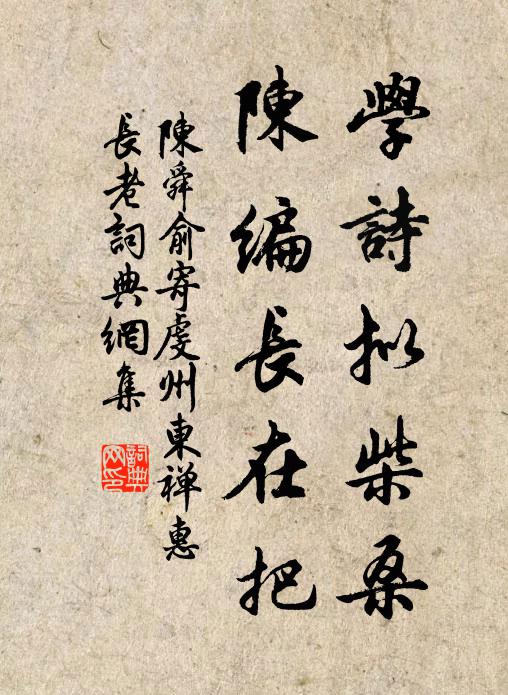 學詩拟柴桑
陳編長在把
陳舜俞寄虔州東禅惠
長老詞典網集
詞典网印